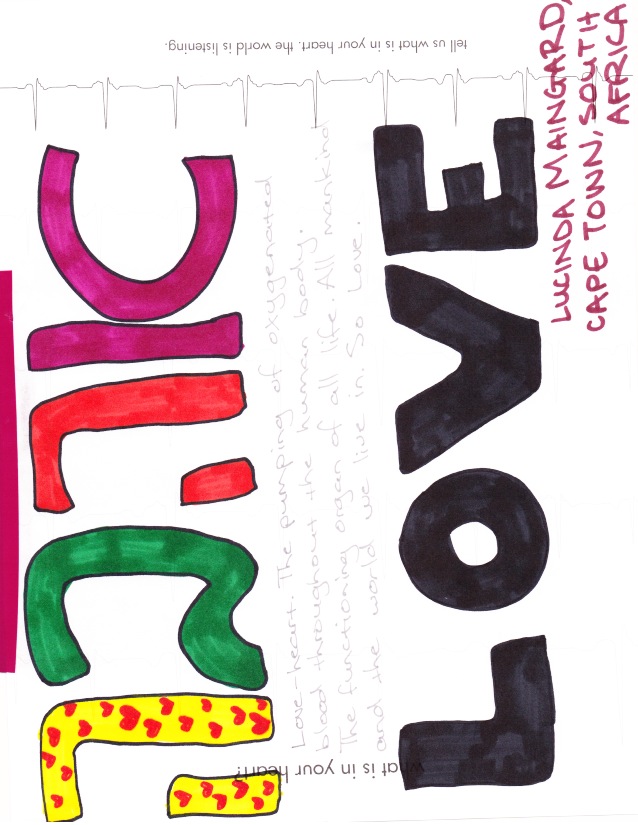 אהבה
Love-heart. The pumping of oxygenated
blood throughout the human body.
The functioning organ of all life. All mankind
and the world we live in. So Love.
LOVE
LUCINDA MAINGARD,
CAPE TOWN, SOUTH
AFRICA
what is in your heart?
tell us what is in your heart. the world is listening.